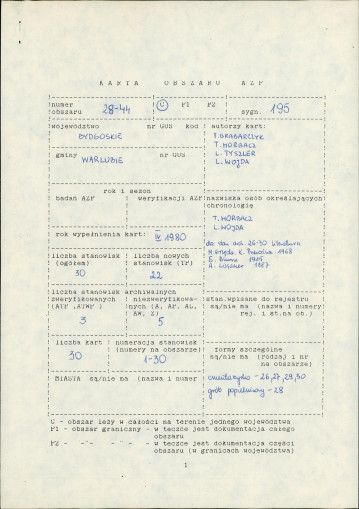 KARTA OBSZARU AZP
numer obszaru 28-44 C P1 P2 sygn. 195
województwo nr GUS kod autorzy kart:
BYDGOSKIE T. GRABARCZYK
T. HORBACZ
gmina nr GUS L. TYSZLER
WARLUBIE L. WOJDA
rok i sezon
badań AZP weryfikacji AZP nazwiska osób określających
chronologię
T. HORBACZ
L. WOJDA
rok wypełnienia kart: IV 1980
dla stan. arch. 26-30 literatura
liczba stanowisk liczba nowych
(ogółem) stanowisk (TP)
30 22
liczba stanowisk archiwalnych
zweryfikowanych niezweryfikowa- stan.wpisane do rejestru
(ATP, ATWP) nych (A, AP, AL, są/nie ma (nazwa i numery
AW, Z) rej. i st.na ob.)
3 5
liczba kart numeracja stanowisk
(numery na obszarze) formy szczególne
30 1-30 są/nie ma (rodzaj i nr
na obszarze)
MIASTA są/nie ma (nazwa i numer cmentarzysko - 26, 27, 29, 30
grób popielnicowy - 28
C - obszar leży w całości na terenie jednego województwa
P1 - obszar graniczny - w teczce jest dokumentacja całego
obszaru
P2 - -"- -"- - w teczce jest dokumentacja części
obszaru (w granicach województwa)
1